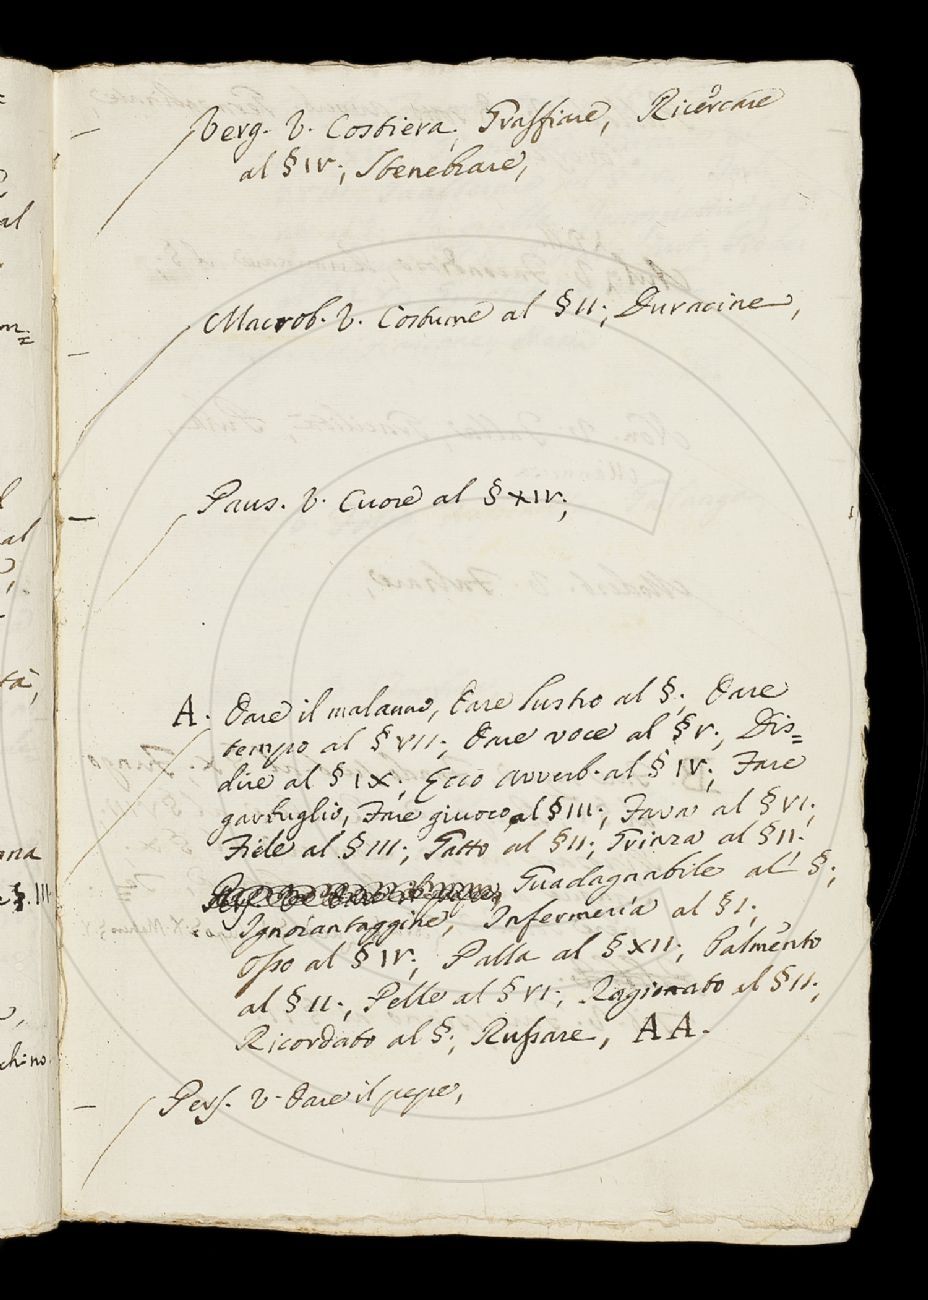 Verg. V. Costiera, Graffiare, Ricercare
al § IV; Stenebrare,
Macrob. V. Costume al § II; Duracine,
Paus. V. Cuore al § XIV;
A. Dare il malanno, Dare lustro al §; Dare
tempo al § VII; Dare voce al § V; Dis=
dire al § IX; Ecco Avverb. al § IV; Fare
garbuglio, Fare giuoco al § III; Fava al § VI;
Fiele al § III; Gatto al § II; Grinza al § II.
Guadagnabile al §;
Ignorantaggine, Infermeria al § I;
Osso al § IV; Palla al § XII; Palmento
al § II; Pelle al § VI; Ragionato al § II;
Ricordato al §; Russare, AA.
Pers. V. Dare il pepe,
al
al
tà,
§. III
chino